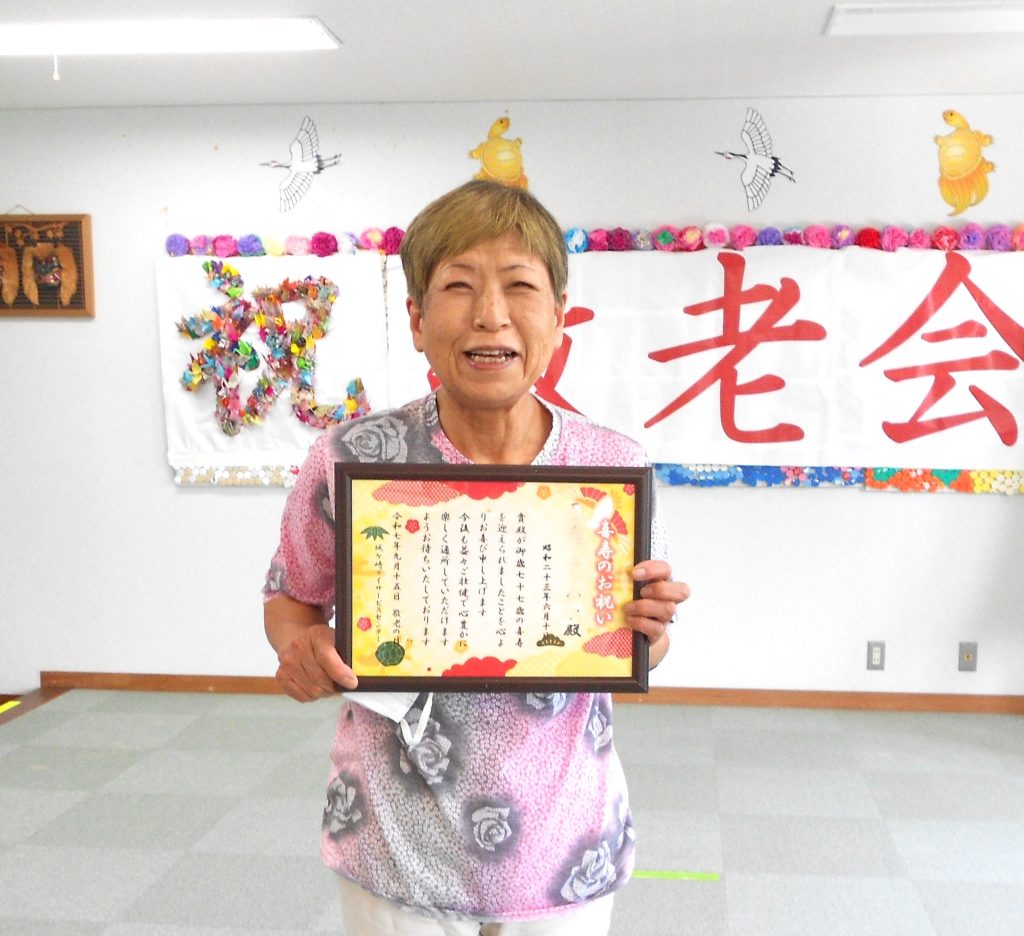 祝 敬老会
喜寿のお祝い
殿
昭和二十三年六月十
貴殿が御歳七十七歳の喜寿
を迎えられましたことを心よ
りお喜び申し上げます
今後も益々ご壮健で心豊かに
楽しく通所していただけます
ようお待ちいたしております
令和七年九月十五日 敬老の日
城ヶ崎デイサービスセンター